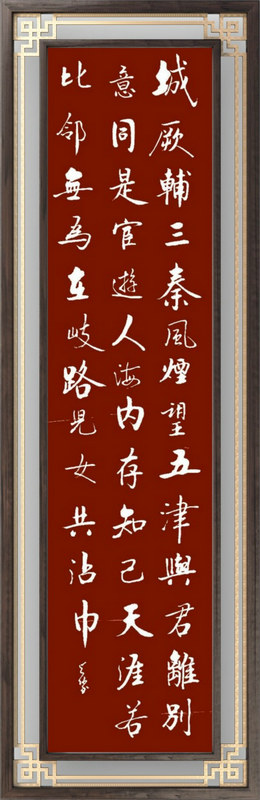 城厥輔三秦風煙望五津與君離別
意同是官遊人海内存知己天涯若
比邻無為在歧路兒女共沾巾